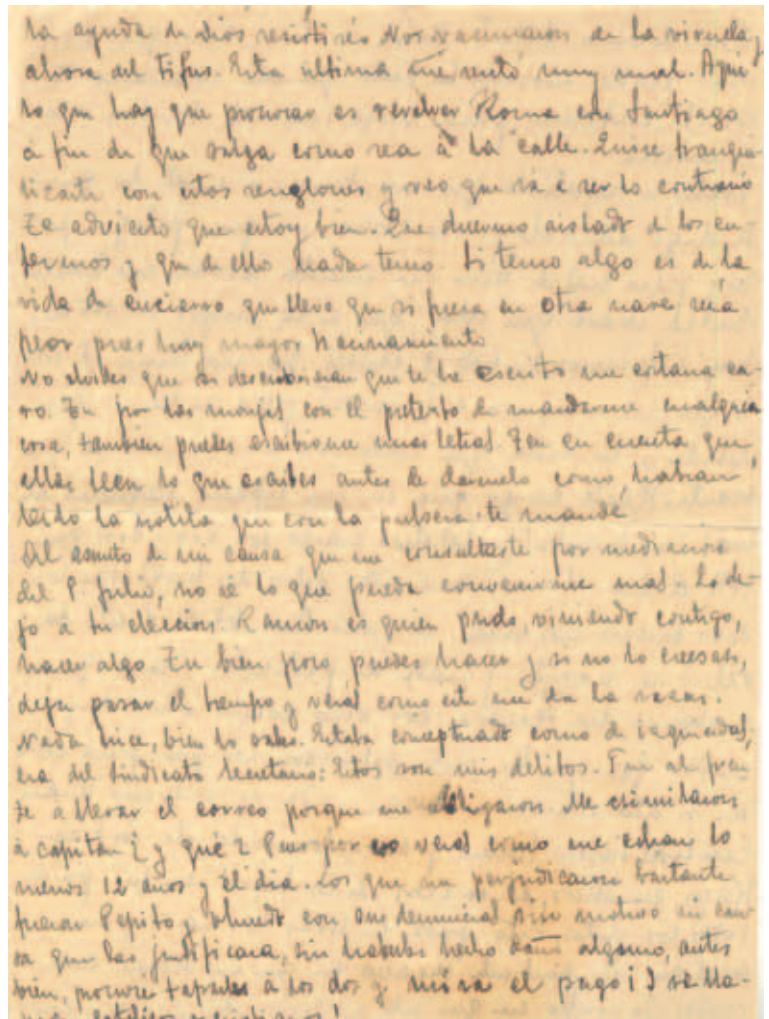 la ayuda de Dios resistiré. Nos vacunaron de la viruela y
ahora del tifus. Esta ultima me sentó muy mal. Aqui
lo que hay que procurar es revolver Roma con Santiago
a fin de que salga como sea à la calle. Quise tranqui-
lizarte con estos renglones y veo que vá à ser lo contrario
Te advierto que estoy bien. Que duermo aislado de los en-
fermos y que de ello nada temo. Si temo algo es de la
vida de encierro que llevo que si fuera en otra nave seria
peor pues hay mayor hacinamiento
No olvides que si descubrieran que te he escrito me costaria ca-
ro. Tu por las monjas con el pretexto de mandarme cualquier
cosa, tambien puedes escribirme unas letras. Ten en cuenta que
ellas leen lo que escribes antes de darmelo como, habran
leido la notita que con la pulsera te mandé
Del asunto de mi causa que me consultaste por mediacion
del P. Julio, no sé lo que pueda convenirme mas. Lo de-
jo à tu eleccion. Ramon es quien pudo, viniendo contigo,
hacer algo. Tu bien poco puedes hacer y si no lo creyeses,
deja pasar el tiempo y verás como este me da la razon.
Nada hice, bien lo sabes. Estaba conceptuado como de izquierdas,
era del Sindicato Secretario: Estos son mis delitos. Fui al fren-
te a llevar el correo porque me obligaron. Me asimilaron
à capitan ¿y qué? Pues por eso verás como me echan lo
menos 12 años y el dia. Los que me perjudicaron bastante
fueron Pepito y con sus denuncias sin motivo ni cau-
sa que las justificara, sin haberles hecho daño alguno, antes
bien, procuré taparles à los dos y mira el pago ¡Y se lla-
man catolicos cristianos!